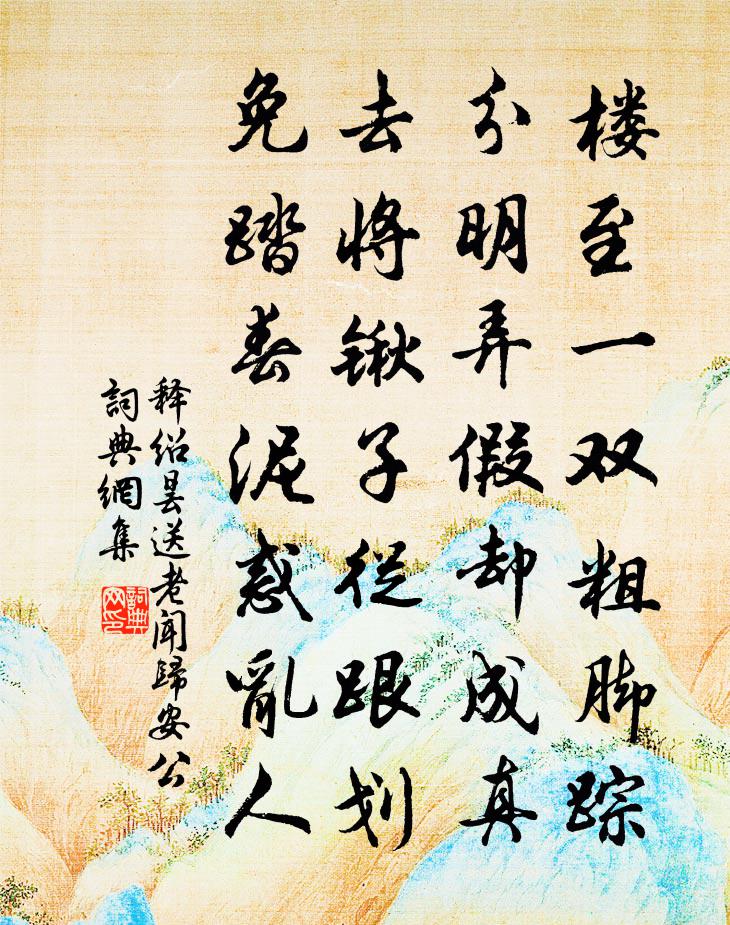 楼至一双粗脚踪
分明弄假却成真
去将锹子从跟划
免踏春泥惑乱人
释绍昙送老闻歸安公
詞典網集
詞典
网印